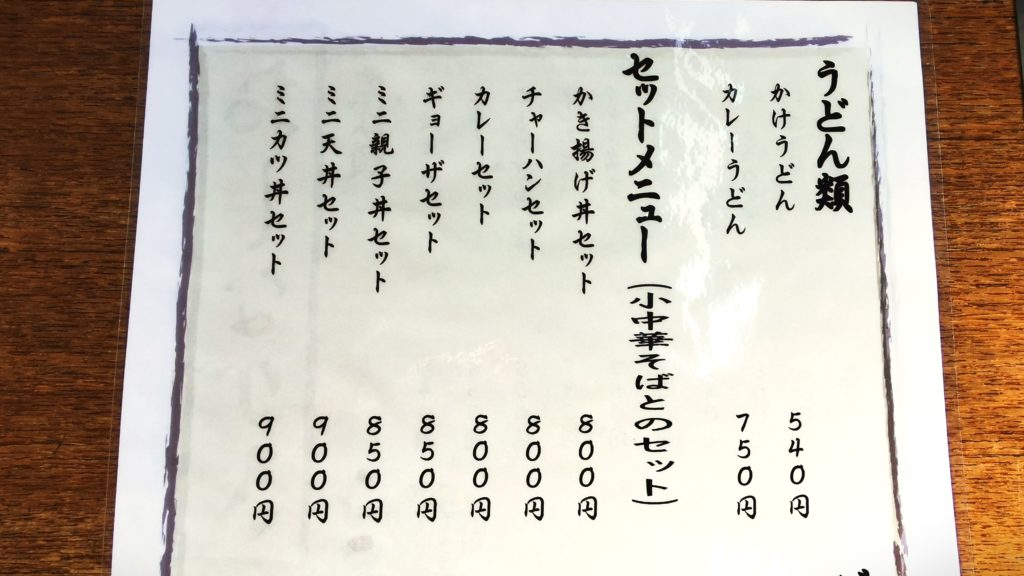 うどん類
かけうどん 540円
カレーうどん 750円
セットメニュー (小中華そばとのセット)
かき揚げ丼セット 800円
チャーハンセット 800円
カレーセット 800円
ギョーザセット 850円
ミニ親子丼セット 850円
ミニ天丼セット 900円
ミニカツ丼セット 900円